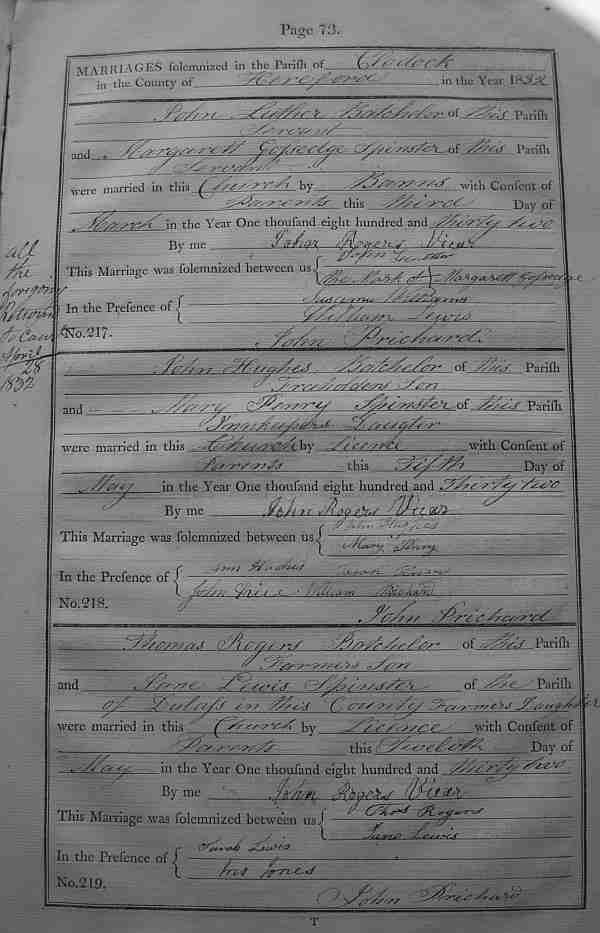 Page 73.
MARRIAGES solemnized in the Parish of Clodock
in the County of Hereford in the Year 1832
John Luther Batchelor of this Parish
Servant
and Margarett Gosedge Spinster of this Parish
Servant
were married in this Church by Banns with Consent of
Parents this third Day of
March in the Year One thousand eight hundred and thirty two
By me John Rogers Vicar
John
This Marriage was solemnized between us The Mark of Margarett
Susanna Williams
In the Presence of William Lewis
No. 217. John Prichard
all
the
foregoing
to
April
28
1832
John Hughes Batchelor of this Parish
Freeholders Son
and Mary Penry Spinster of this Parish
Innkeepers Daugter
were married in this Church by Licence with Consent of
Parents this Fifth Day of
May in the Year One thousand eight hundred and Thirty two
By me John Rogers Vicar
John Hughes
This Marriage was solemnized between us Mary Penry
Ann Hughes
In the Presence of John Price William Prichard
No. 218. John Prichard
Thomas Rogers Batchelor of this Parish
Farmers Son
and Jane Lewis Spinster of the Parish
of Dulass in this County Farmers Daughter
were married in this Church by Licence with Consent of
Parents this Twelvth Day of
May in the Year One thousand eight hundred and thirty two
By me John Rogers Vicar
Thos Rogers
This Marriage was solemnized between us Jane Lewis
Sarah Lewis
In the Presence of Jones
No. 219. John Prichard
T